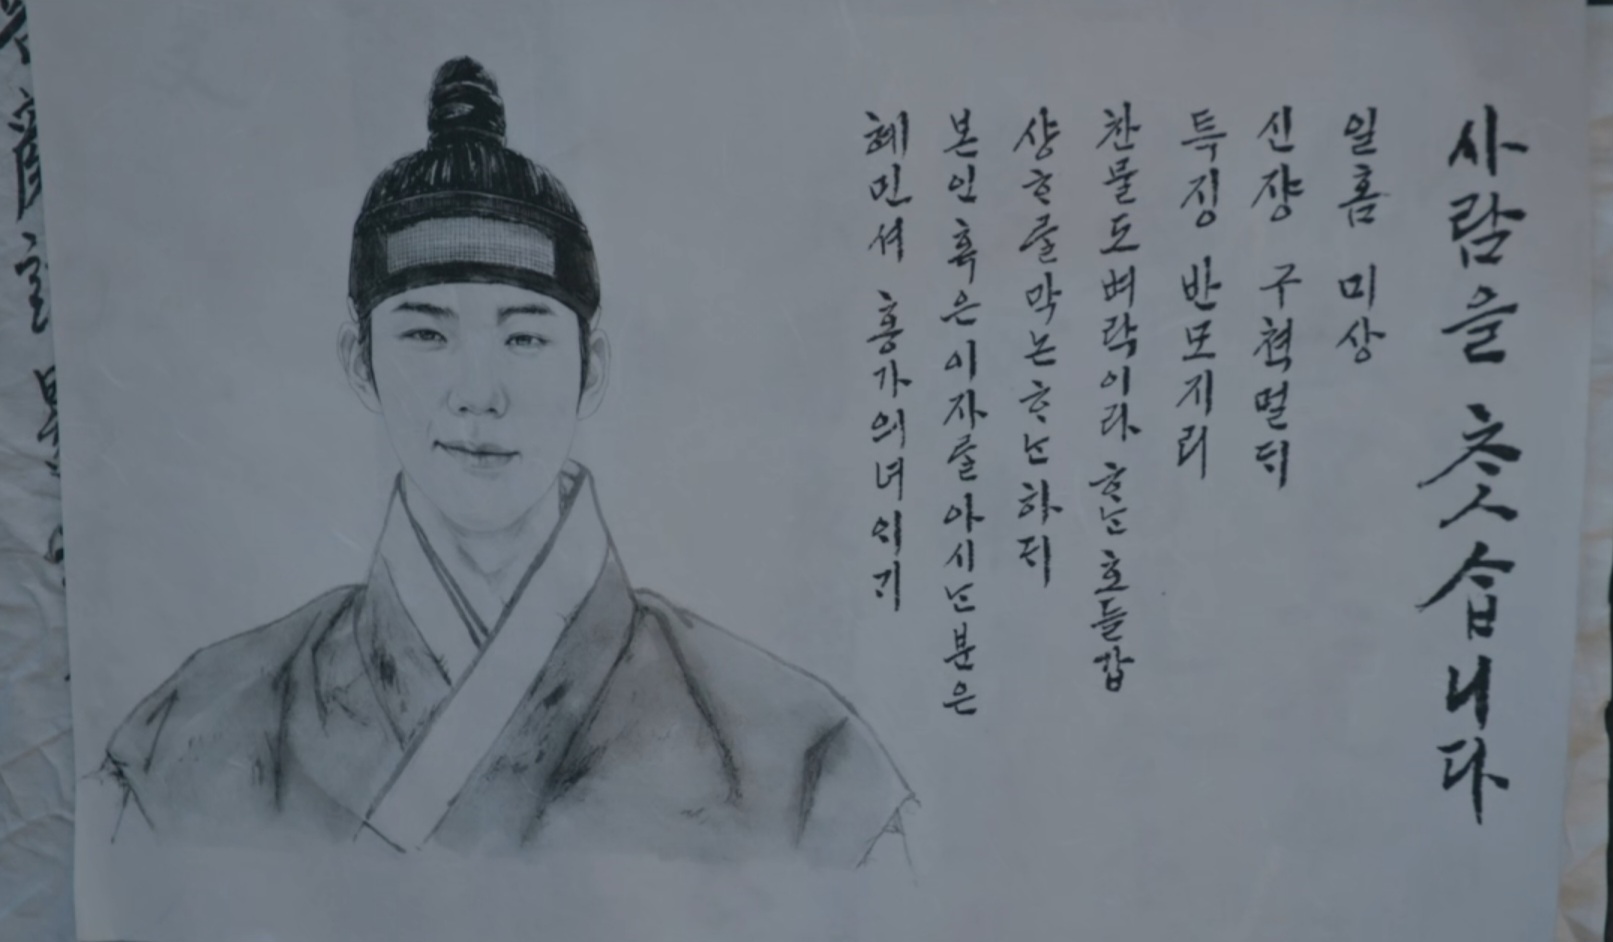 사람을 찻습니다
일홈 미상
신쟝 구쳑멀티
특징 반모지리
찬물도벼락이라 ᄒᆞᆫ 호들갑
샹ᄒᆞᄅᆞᆯ막논ᄒᆞᄂᆞᆫ하티
본인혹은이자ᄅᆞᆯ아시ᄂᆞᆫ분은
혜민셔 홍가의녀의기